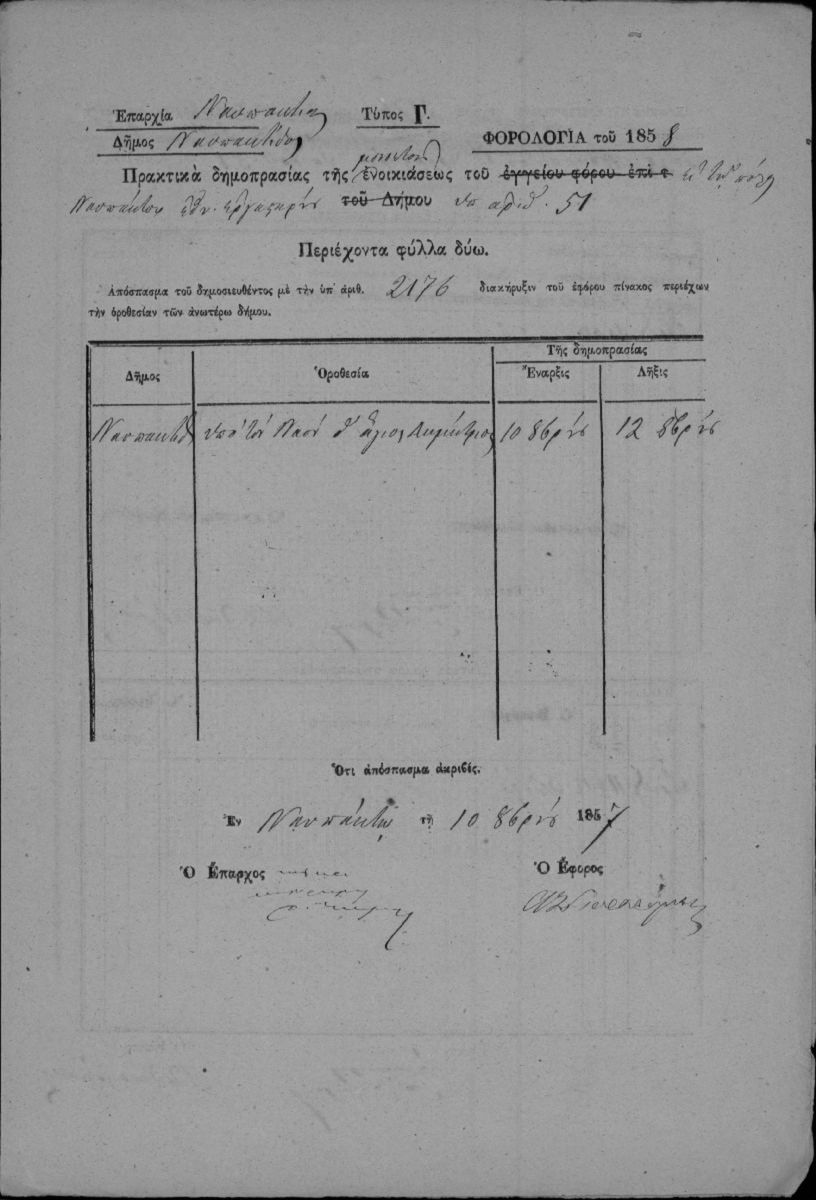 Ἐπαρχία Ναυπακτίας Τύπος Γ.
Δῆμος Ναυπακτίδος ΦΟΡΟΛΟΓΙΑ τοῦ 1858
Πρακτικὰ δημοπρασίας τῆς ἐνοικιάσεως τοῦ ἐγγείου φόρου ἐπὶ τ
Ναυπάκτου τοῦ Δήμου ὑπ ἀριθ. 51
Περιέχοντα φύλλα δύω.
Ἀπόσπασμα τοῦ δημοσιευθέντος μὲ τὴν ὑπ' ἀριθ. 2176 διακήρυξιν τοῦ ἐφόρου πίνακος περιέχων
τὴν ὁροθεσίαν τῶν ἀνωτέρω δήμου.
Τῆς δημοπρασίας
Δῆμος Ὁροθεσία Ἔναρξις Λῆξις
Ναυπακτίδ ὑπὸ τὸν Ναὸν ὁ ἅγιος Δημήτριος 10 8βρίου 12 8βρίου
Ὅτι ἀπόσπασμα ἀκριβές.
Ἐν Ναυπάκτῳ τῇ 10 8βρίου 1857
Ὁ Ἔπαρχος Ὁ Ἔφορος